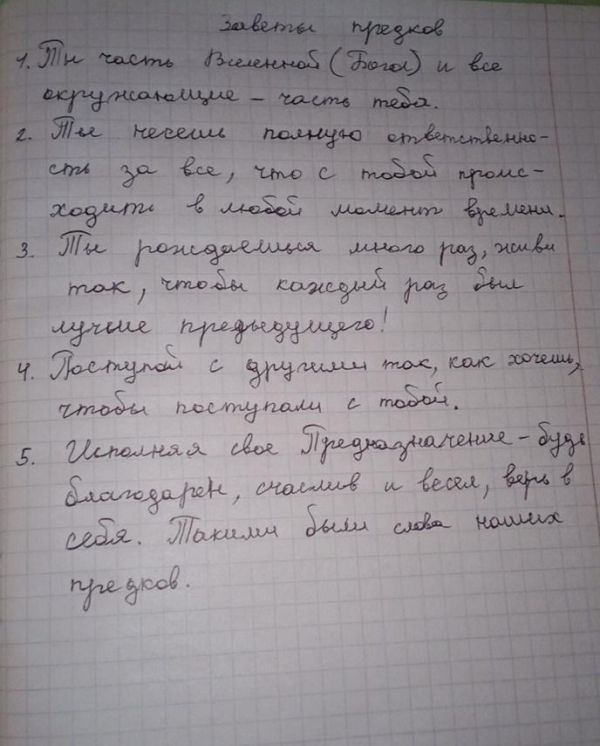 Заветы предков
1. Ты часть Вселенной (Бога) и все
окружающие - часть тебя.
2. Ты несешь полную ответственно-
сть за все, что с тобой проис-
ходить в любой момент времени.
3. Ты рождаешься много раз, живи
так, чтобы каждый раз был
лучше предыдущего!
4. Поступай с другими так, как хочешь,
чтобы поступали с тобой.
5. Исполняя свое Предназначение - будь
благодарен, счаслив и весел, верь в
себя. Такими были слова наших
предков.